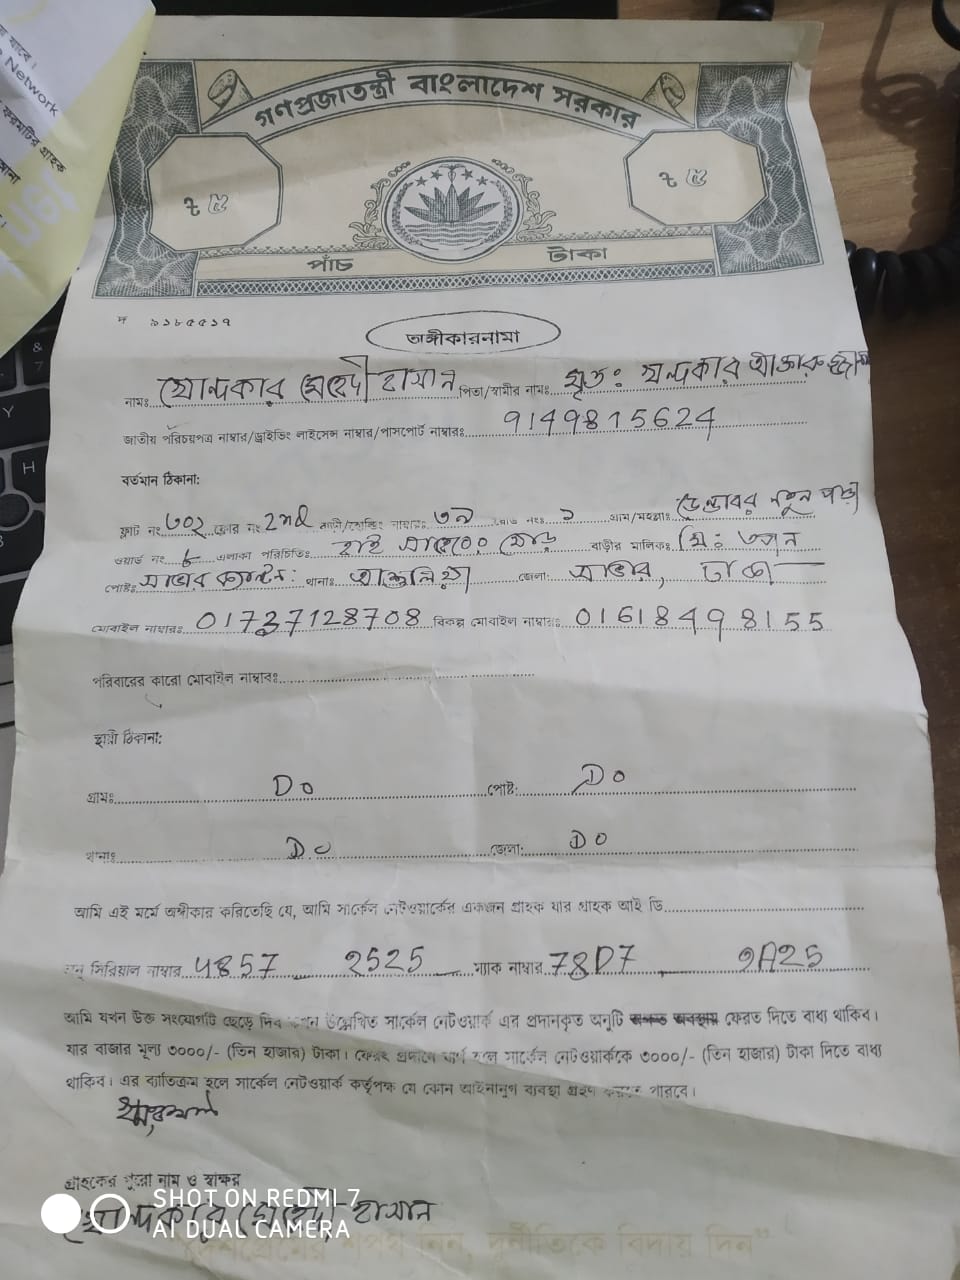 যাবে।
Network
ফরমটির গ্রাহক
গণপ্রজাতন্ত্রী বাংলাদেশ সরকার
৳ ৫ ৳ ৫
পাঁচ টাকা
দ ৯১৮৫৫১৭
অঙ্গীকারনামা
নামঃ খোন্দকার মেহেদী হাসান পিতা/স্বামীর নামঃ মৃতঃ খন্দকার
জাতীয় পরিচয়পত্র নাম্বার/ড্রাইভিং লাইসেন্স নাম্বার/পাসপোর্ট নাম্বারঃ 9149815624
বর্তমান ঠিকানা:
ফ্লাট নং ৩০২ ফ্লোর নং 2nd নাম্বারঃ নংঃ ১ গ্রাম/মহল্লাঃ নতুন পাড়া
ওয়ার্ড নং ৮ এলাকা পরিচিতিঃ হাই মোড় বাড়ীর মালিকঃ
পোষ্টঃ সাভার ক্যান্টঃ থানাঃ আশুলিয়া জেলা: সাভার, ঢাকা
মোবাইল নাম্বারঃ 01737128708 বিকল্প মোবাইল নাম্বারঃ 01618498155
পরিবারের কারো মোবাইল নাম্বারঃ
স্থায়ী ঠিকানা:
গ্রামঃ Do পোষ্ট: Do
থানাঃ Do জেলা: Do
আমি এই মর্মে অঙ্গীকার করিতেছি যে, আমি সার্কেল নেটওয়ার্কের একজন গ্রাহক যার গ্রাহক আই ডি
অনু সিরিয়াল নাম্বার 4857 2525 ম্যাক নাম্বার 78D7 9A25
আমি যখন উক্ত সংযোগটি ছেড়ে দিব তখন উল্লেখিত সার্কেল নেটওয়ার্ক এর প্রদানকৃত অনুটি ফেরত দিতে বাধ্য থাকিব।
যার বাজার মূল্য ৩০০০/- (তিন হাজার) টাকা। ফেরৎ প্রদানে ব্যর্থ হলে সার্কেল নেটওয়ার্ককে ৩০০০/- (তিন হাজার) টাকা দিতে বাধ্য
থাকিব। এর ব্যতিক্রম হলে সার্কেল নেটওয়ার্ক কর্তৃপক্ষ যে কোন আইনানুগ ব্যবস্থা গ্রহণ করতে পারবে।
গ্রাহকের পুরো নাম ও স্বাক্ষর
খোন্দকার মেহেদী হাসান
SHOT ON REDMI 7
AI DUAL CAMERA
"দেশপ্রেমের শপথ নিন, দুর্নীতিকে বিদায় দিন"